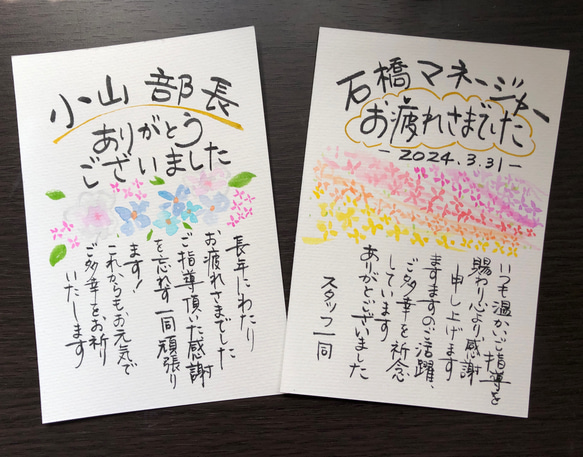 小山部長
ありがとう
ございました
長年にわたり
お疲れさまでした
ご指導頂いた感謝
を忘れず一同頑張り
ます!
これからもお元気で
ご多幸をお祈り
いたします
石橋マネージャー
お疲れさまでした
-2024.3.31-
いつも温かいご指導を
賜わり心より感謝
申し上げます
ますますのご活躍、
ご多幸を祈念
しています
ありがとうございました
スタッフ一同